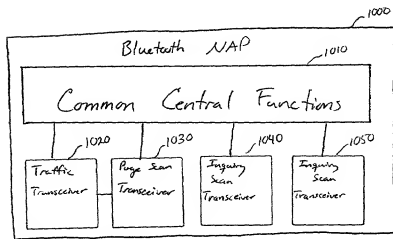 1000
Bluetooth NAP
1010
Common Central Functions
1020
1030
1040
1050
Traffic
Transceiver
Page Scan
Transceiver
Inquiry
Scan
Transceiver
Inquiry
Scan
Transceiver